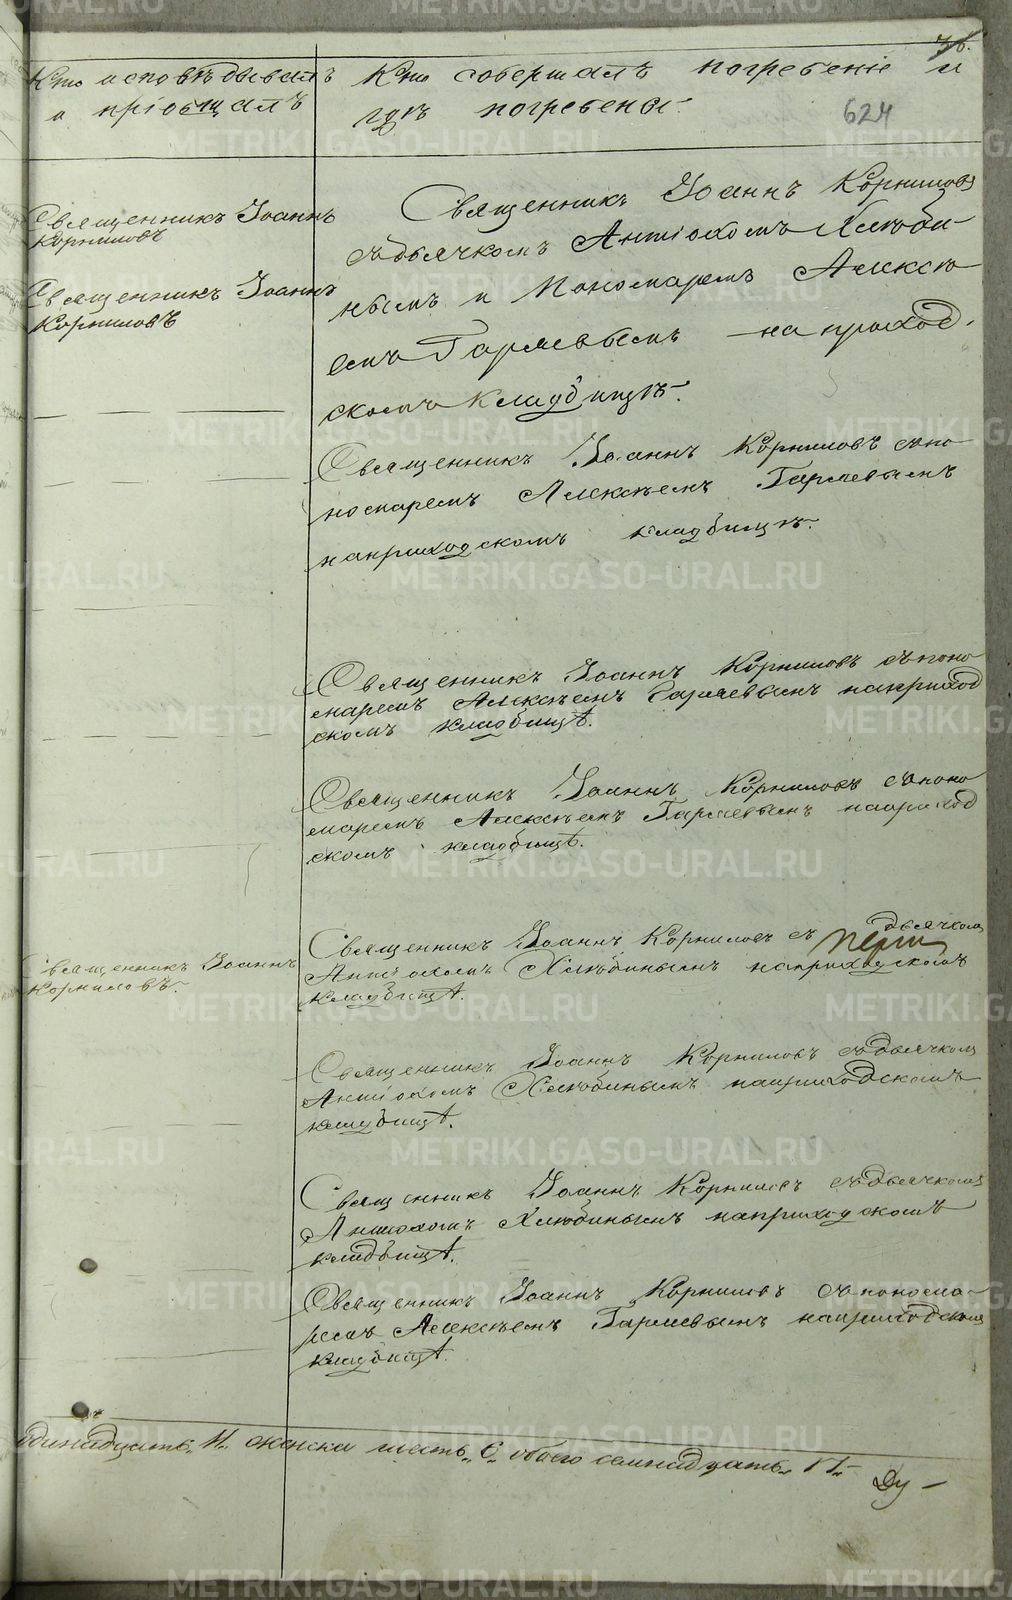 Кто исповѣдывалъ
и пріобщалъ
Кто совершалъ погребеніе и
гдѣ погребены.
624
Священникъ Іоаннъ
Корниловъ
Священникъ Іоаннъ
Корниловъ
Священникъ Іоаннъ Корниловъ
съ дьячкомъ Антіохомъ Хлюби-
нымъ и Пономаремъ Алексѣ
емъ Гаряевымъ на приход-
скомъ кладбищѣ.
Священникъ Іоаннъ Корниловъ съ по
номаремъ Алексѣемъ Гаряевымъ
на приходскомъ кладбищѣ.
Священникъ Іоаннъ Корниловъ съ поно
маремъ Алексѣемъ Гаряевымъ на приход
скомъ кладбищѣ.
Священникъ Іоаннъ Корниловъ съ поно
маремъ Алексѣемъ Гаряевымъ на приход
скомъ кладбищѣ.
Священникъ Іоаннъ
Корниловъ.
Священникъ Іоаннъ Корниловъ съ дьячком
Антіохомъ Хлюбинымъ на приходскомъ
кладбищѣ.
Священникъ Іоаннъ Корниловъ съ дьячком
Антіохомъ Хлюбинымъ на приходскомъ
кладбищѣ.
Священникъ Іоаннъ Корниловъ съ дьячкомъ
Антіохомъ Хлюбинымъ на приходскомъ
кладбищѣ.
Священникъ Іоаннъ Корниловъ съ понома-
ремъ Алексѣемъ Гаряевымъ на приходском
кладбищѣ.
одинадцать, 11. женска шесть, 6, обоего семнадцать, 17.
Ду -
METRIKI.GASO-URAL.RU